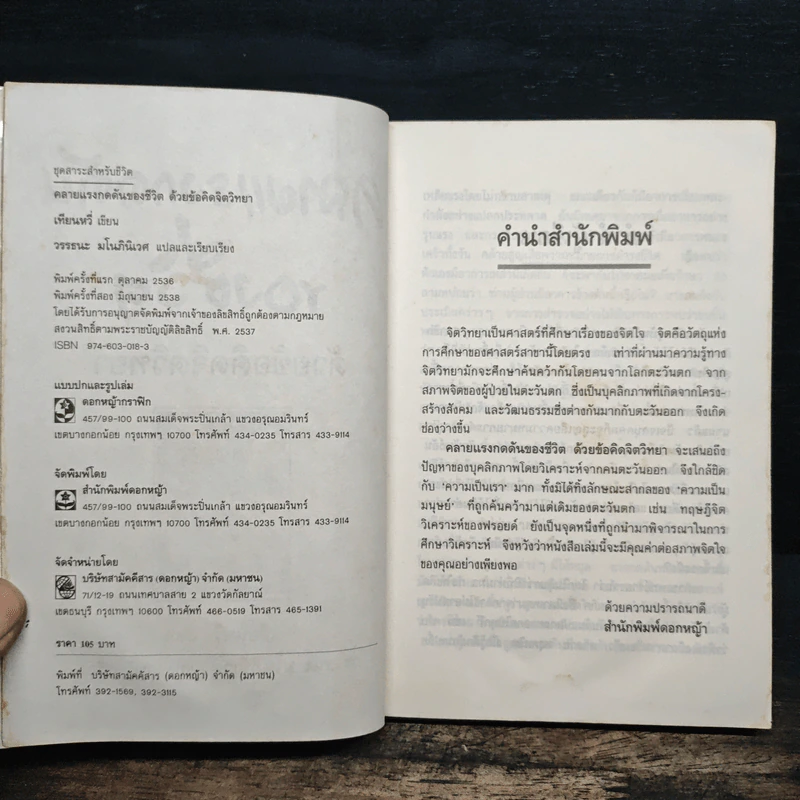 ชุดสาระสำหรับชีวิต
คลายแรงกดดันของชีวิต ด้วยข้อคิดจิตวิทยา
เทียนหวี่ เขียน
วรรธนะ มโนภินิเวศ แปลและเรียบเรียง
พิมพ์ครั้งที่แรก ตุลาคม 2536
พิมพ์ครั้งที่สอง มิถุนายน 2538
โดยได้รับการอนุญาตจัดพิมพ์จากเจ้าของลิขสิทธิ์ถูกต้องตามกฎหมาย
สงวนสิทธิ์ตามพระราชบัญญัติลิขสิทธิ์ พ.ศ. 2537
ISBN 974-603-018-3
แบบปกและรูปเล่ม
ดอกหญ้ากราฟิก
457/99-100 ถนนสมเด็จพระปิ่นเกล้า แขวงอรุณอมรินทร์
เขตบางกอกน้อย กรุงเทพฯ 10700 โทรศัพท์ 434-0235 โทรสาร 433-9114
จัดพิมพ์โดย
สำนักพิมพ์ดอกหญ้า
457/99-100 ถนนสมเด็จพระปิ่นเกล้า แขวงอรุณอมรินทร์
เขตบางกอกน้อย กรุงเทพฯ 10700 โทรศัพท์ 434-0235 โทรสาร 433-9114
จัดจำหน่ายโดย
บริษัทสามัคคีสาร (ดอกหญ้า) จำกัด (มหาชน)
71/12-19 ถนนเทศบาลสาย 2 แขวงวัดกัลยาณ์
เขตธนบุรี กรุงเทพฯ 10600 โทรศัพท์ 466-0519 โทรสาร 465-1391
ราคา 105 บาท
พิมพ์ที่ บริษัทสามัคคีสาร (ดอกหญ้า) จำกัด (มหาชน)
โทรศัพท์ 392-1569, 392-3115
คำนำสำนักพิมพ์
จิตวิทยาเป็นศาสตร์ที่ศึกษาเรื่องของจิตใจ จิตคือวัตถุแห่ง
การศึกษาของศาสตร์สาขานี้โดยตรง เท่าที่ผ่านมาความรู้ทาง
จิตวิทยามักจะศึกษาค้นคว้ากันโดยคนจากโลกตะวันตก จาก
สภาพจิตของผู้ป่วยในตะวันตก ซึ่งเป็นบุคลิกภาพที่เกิดจากโครง-
สร้างสังคม และวัฒนธรรมซึ่งต่างกันมากกับตะวันออก จึงเกิด
ช่องว่างขึ้น
คลายแรงกดดันของชีวิต ด้วยข้อคิดจิตวิทยา จะเสนอถึง
ปัญหาของบุคลิกภาพโดยวิเคราะห์จากคนตะวันออก จึงใกล้ชิด
กับ 'ความเป็นเรา' มาก ทั้งมิได้ทิ้งลักษณะสากลของ 'ความเป็น
มนุษย์' ที่ถูกค้นคว้ามาแต่เดิมของตะวันตก เช่น ทฤษฎีจิต
วิเคราะห์ของฟรอยด์ ยังเป็นจุดหนึ่งที่ถูกนำมาพิจารณาในการ
ศึกษาวิเคราะห์ จึงหวังว่าหนังสือเล่มนี้จะมีคุณค่าต่อสภาพจิตใจ
ของคุณอย่างเพียงพอ
ด้วยความปรารถนาดี
สำนักพิมพ์ดอกหญ้า